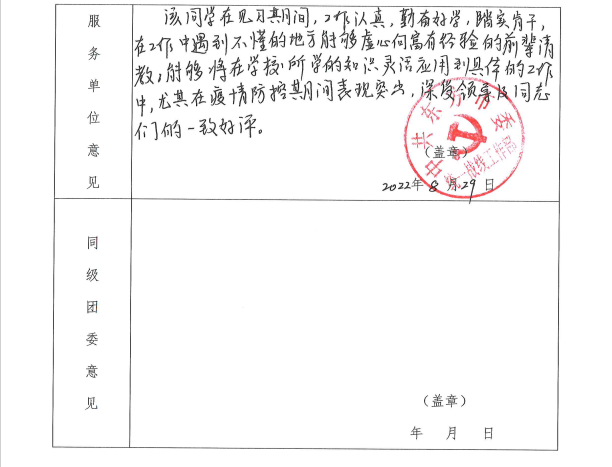 服务单位意见
该同学在见习期间,工作认真,勤奋好学,踏实肯干,
在工作中遇到不懂的地方能够虚心向富有经验的前辈请
教,能够将在学校所学的知识灵活应用到具体的工作
中,尤其在疫情防控期间表现突出,深受领导及同志
们的一致好评。
(盖章)
中共东方市委
统一战线工作部
2022年8月29日
同级团委意见
(盖章)
年 月 日